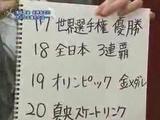 17 世界選手権 優勝
18 全日本 3連覇
19 オリンピック 金メダル
20 真央スケートリンク